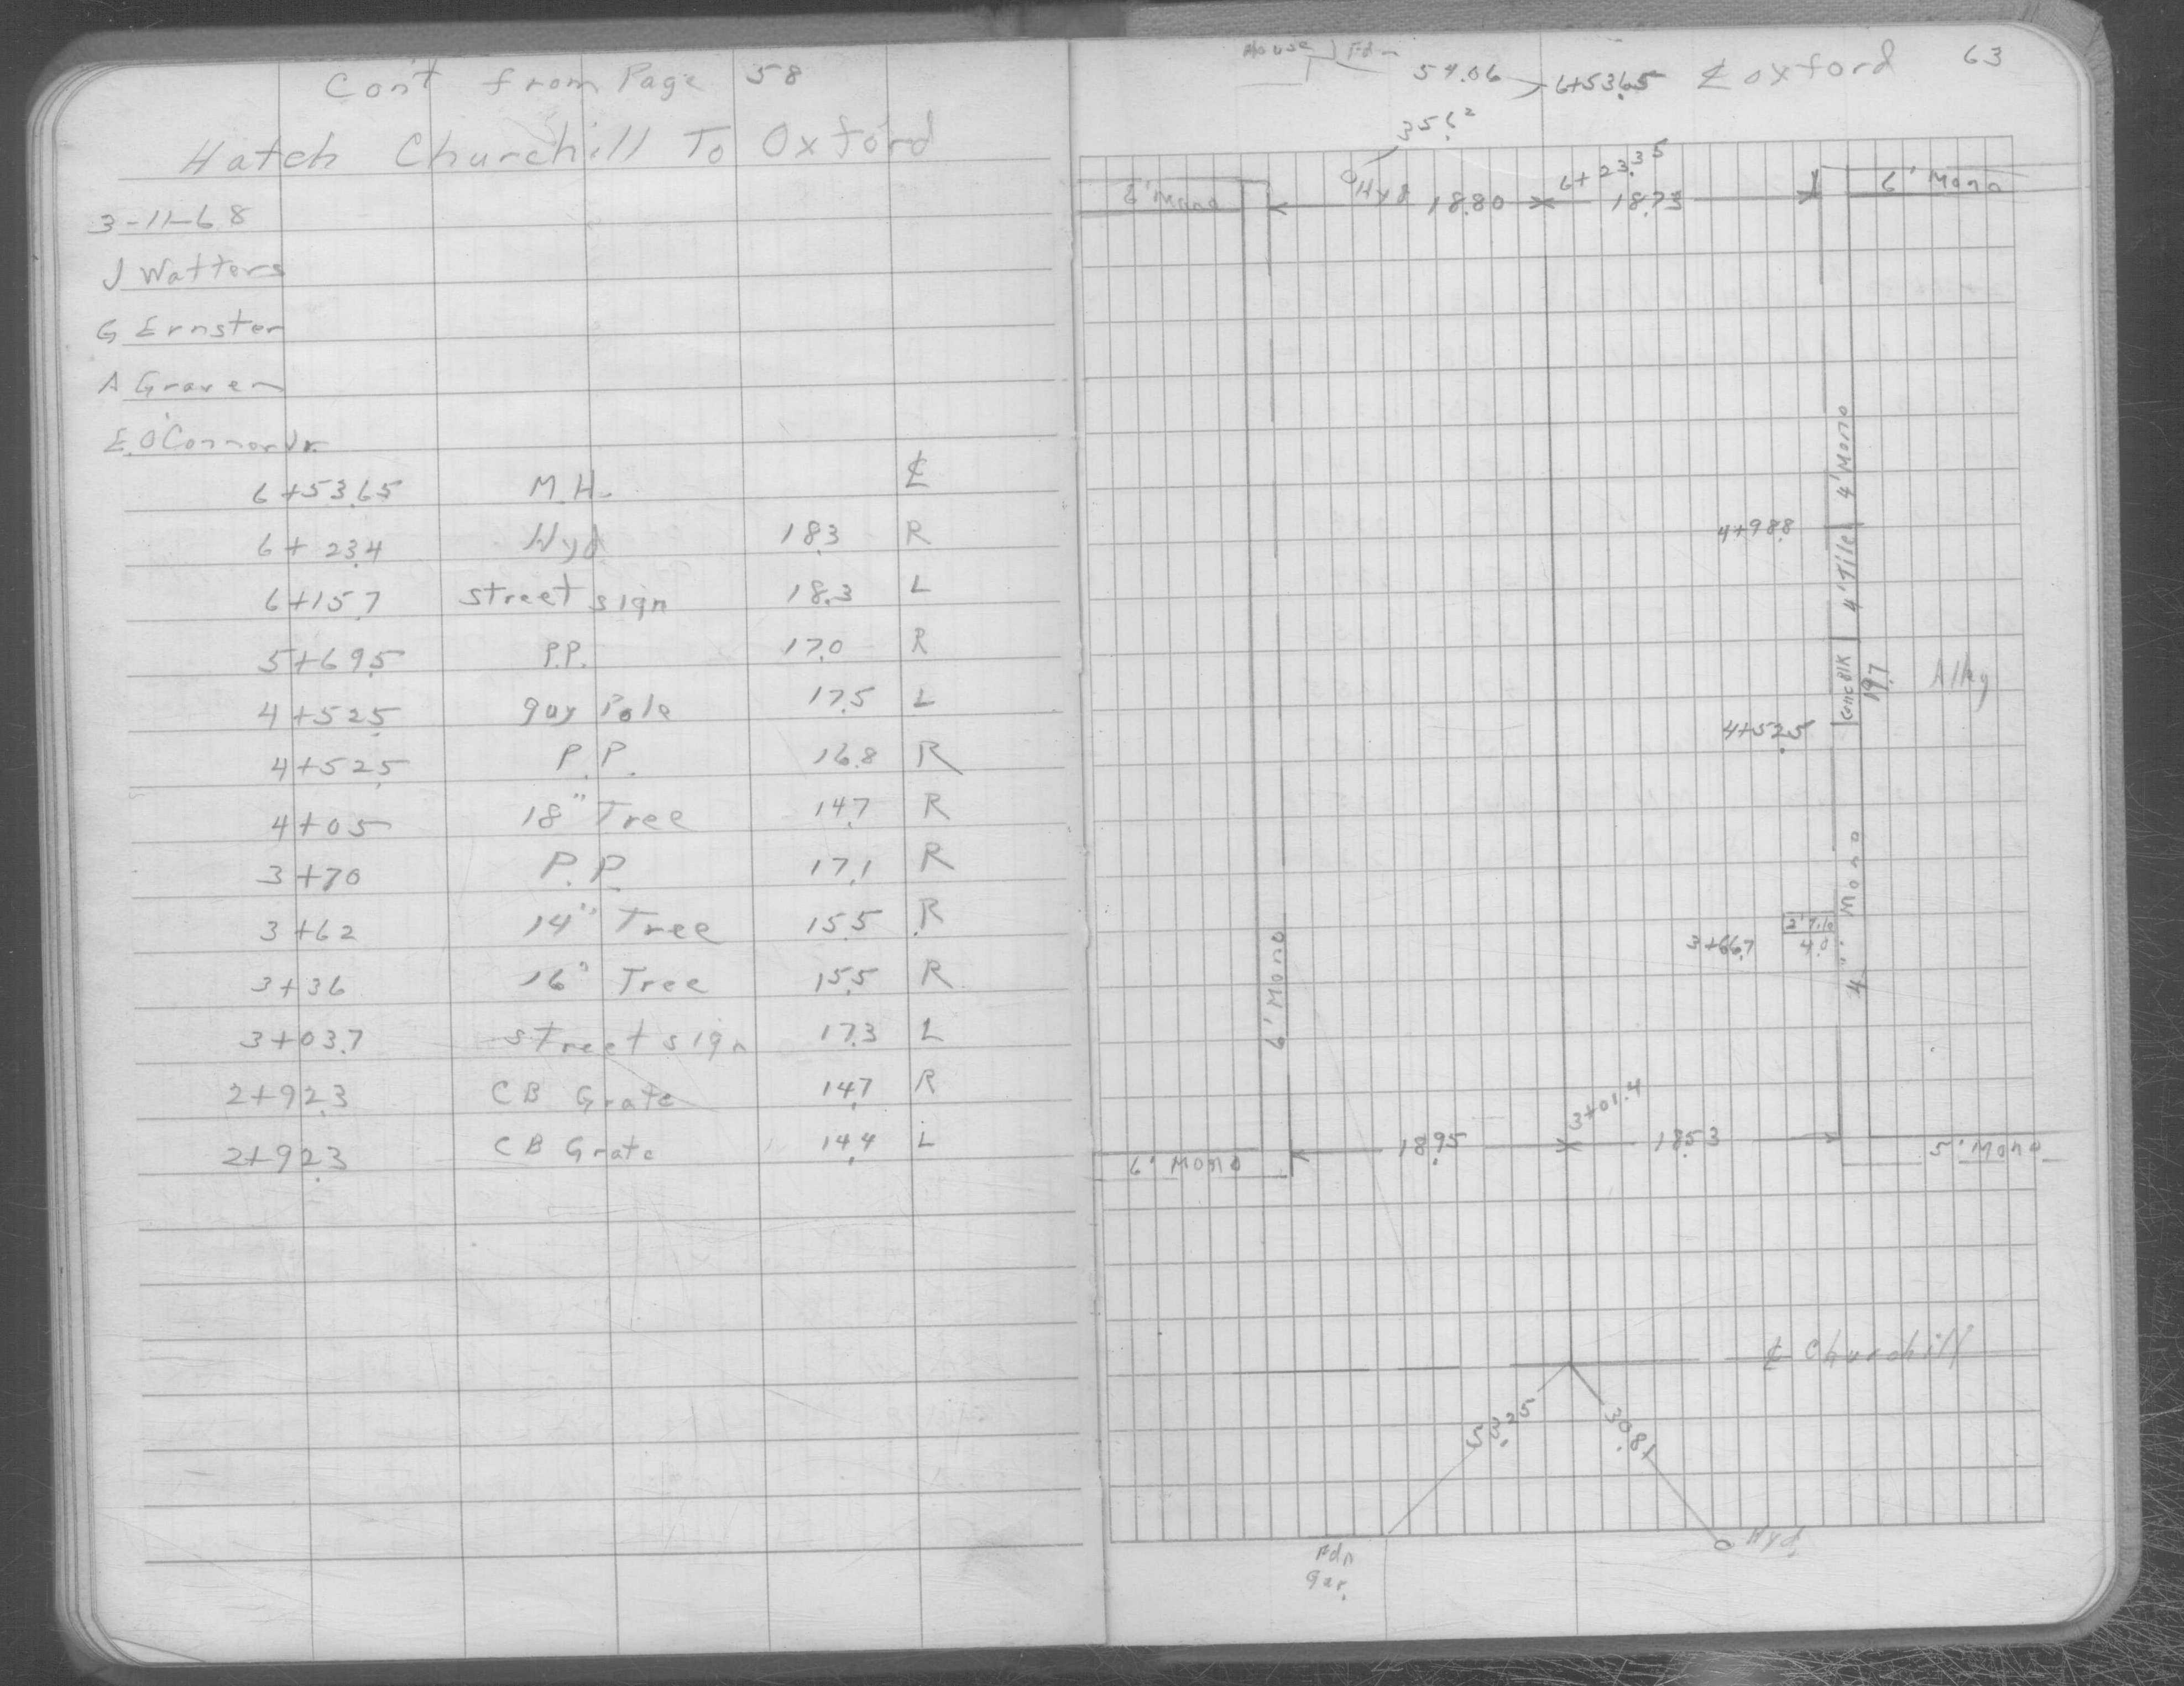 Con't from Page 58
Hatch Churchill To Oxford
3-11-68
J Watters
G Ernster
A Graven
E. O'Connor Jr.
6+53.65 M.H. ℄
6+23.4 Hyd. 18.3 R
6+15.7 street sign 18.3 L
5+69.5 P.P. 17.0 R
4+52.5 guy Pole 17.5 L
4+52.5 P.P. 16.8 R
4+05 18" Tree 14.7 R
3+70 P.P. 17.1 R
3+62 14" Tree 15.5 R
3+36 16" Tree 15.5 R
3+03.7 street sign 17.3 L
2+92.3 CB Grate 14.7 R
2+92.3 CB Grate 14.4 L
63
House Fdn
54.06 6+53.65 ℄ Oxford
35.62
6+23.35
6' Mono Hyd 18.80 18.73 6' Mono
4' Mono
4+98.8
4' Tile
Conc Blk
19.7
Alley
4+52.5
4" Mono
2' Tile
4.0
3+66.7
6' Mono
3+01.4
6' Mono 18.95 18.53 5' Mono
℄ Churchill
53.25 30.81
Fdn
gar.
Hyd.